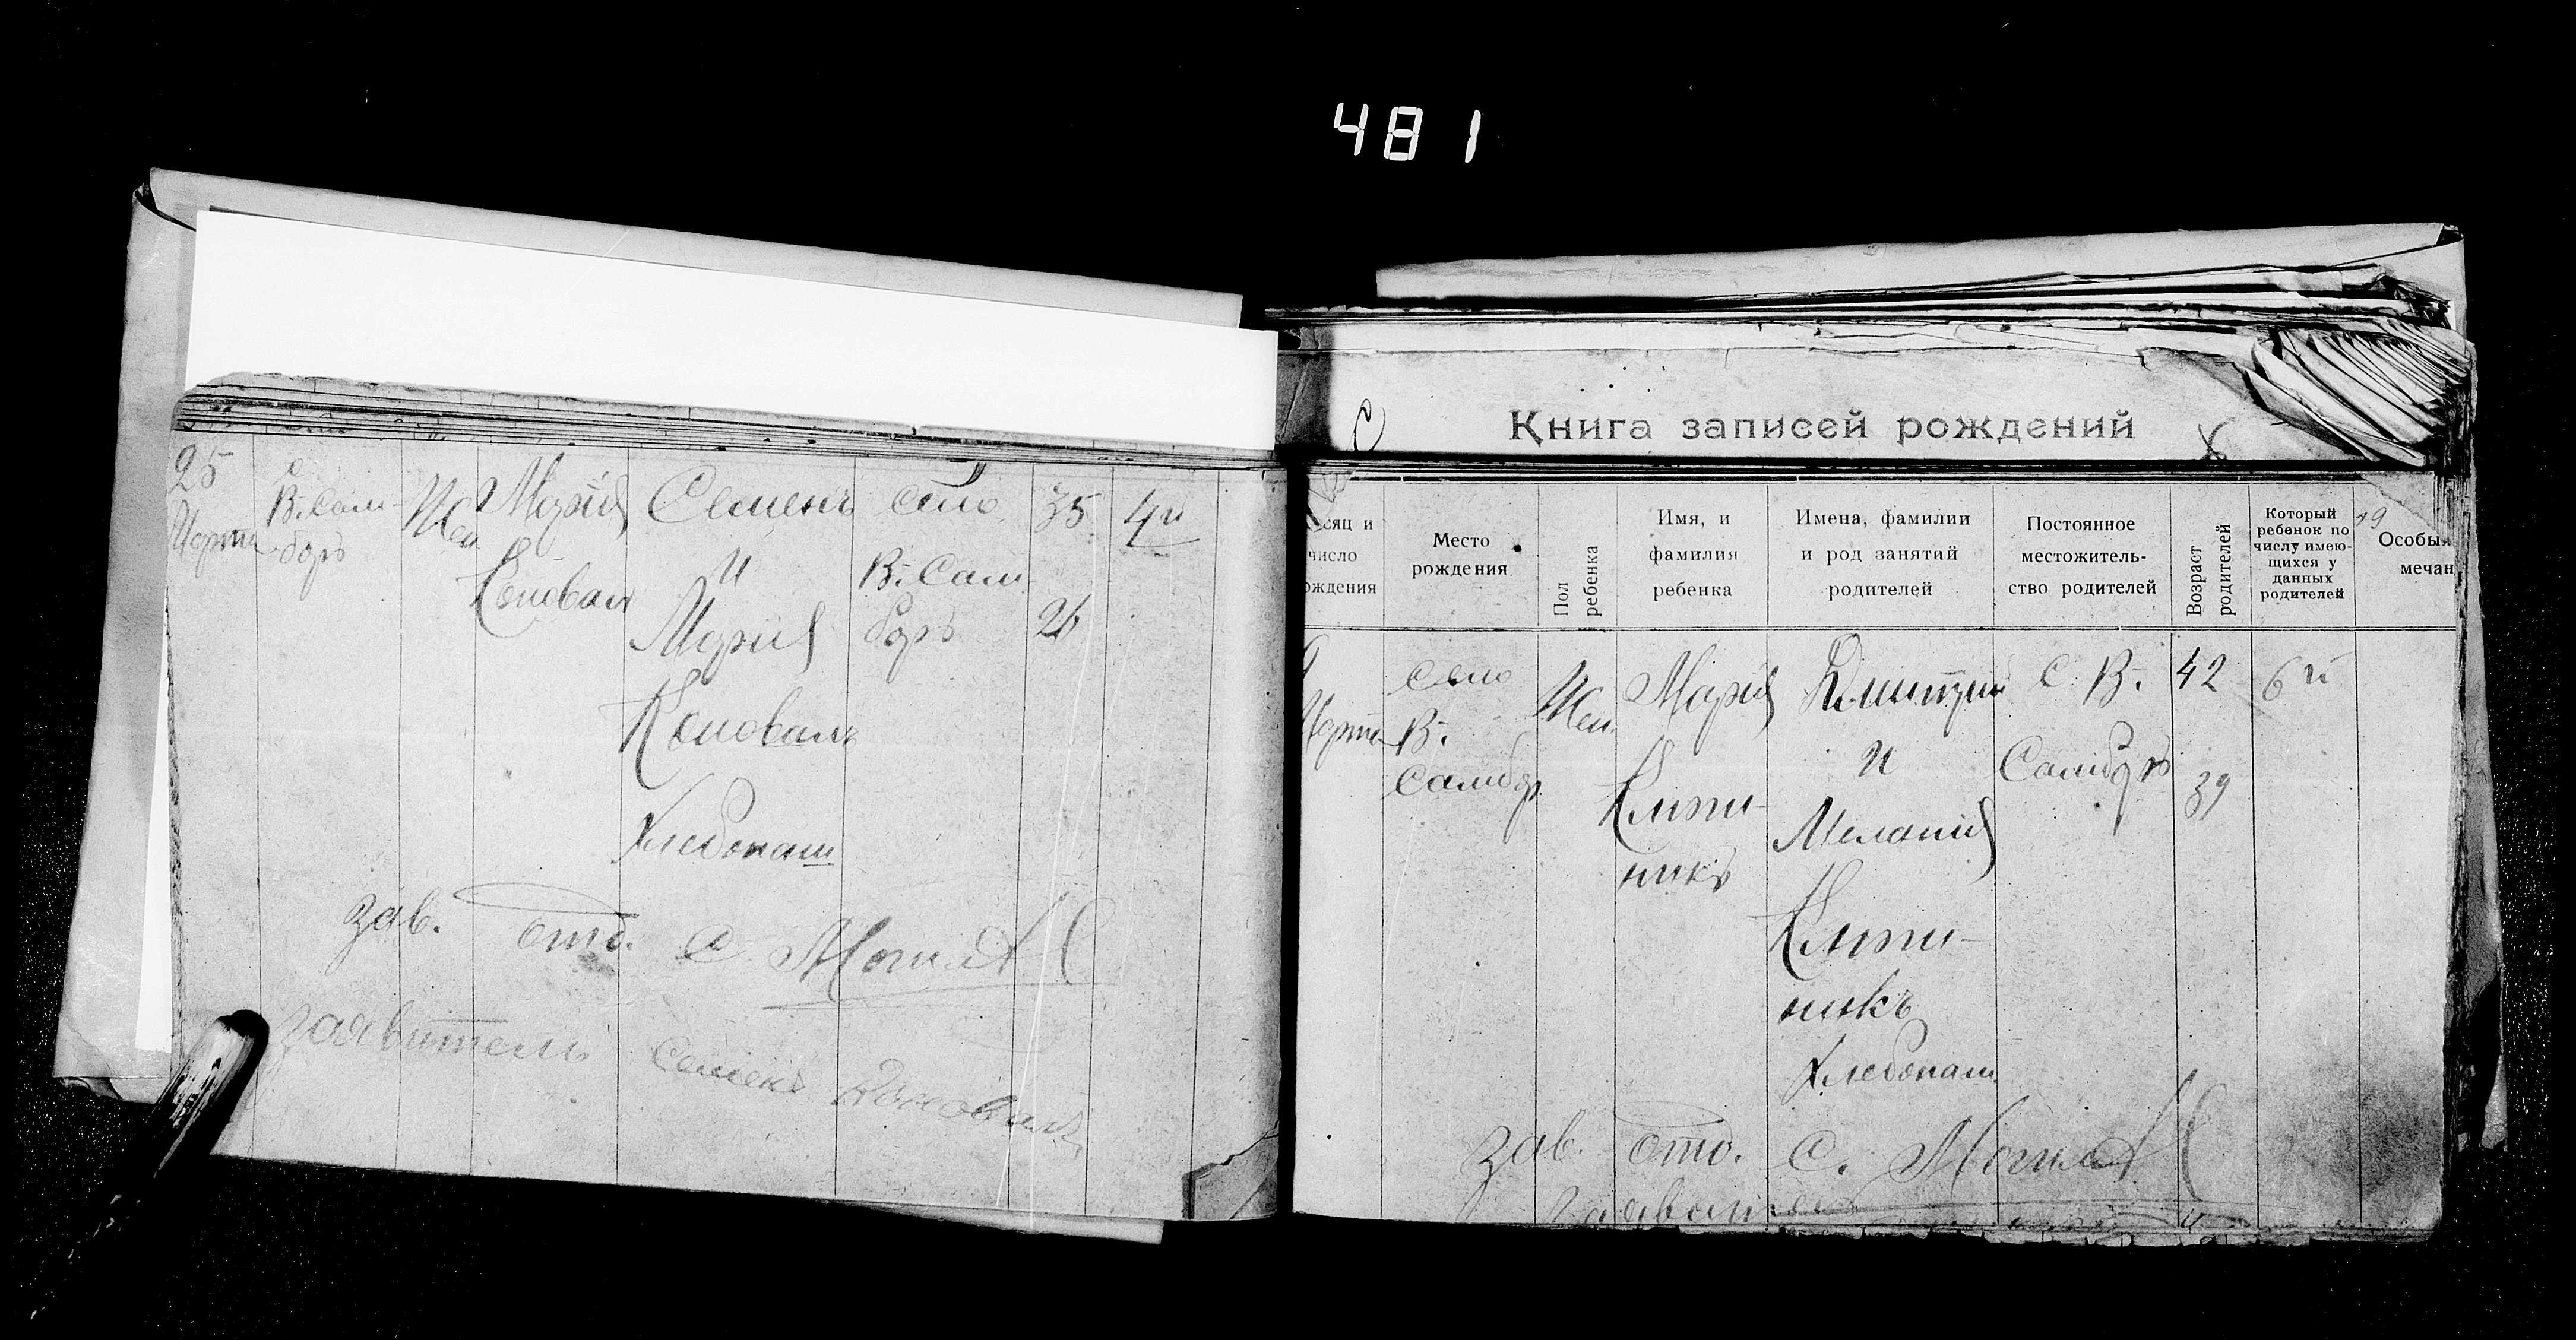 481
25
Марта
с.
В. Сам-
боръ
Жен
Марія
Коновал
Семенъ
и
Марія
Коновалъ
Хлебопаш
село
В. Сам
боръ
35
26
4й
зав. отд. С. Могила
заявитель Семенъ Коновалъ
Книга записей рождений
сяц и
число
ождения
Место
рождения
Пол
ребенка
Имя, и
фамилия
ребенка
Имена, фамилии
и род занятий
родителей
Постоянное
местожитель-
ство родителей
Возраст
родителей
Который
ребенок по
числу имею-
щихся у
данных
родителей
Особы
мечан
Марта
село
В.
Самбор
Жен.
Марія
Дмитрий
и
Меланія
никъ
Хлебопаш.
с. В.
Самборъ
42
39
6й
зав. отд. С. Могила